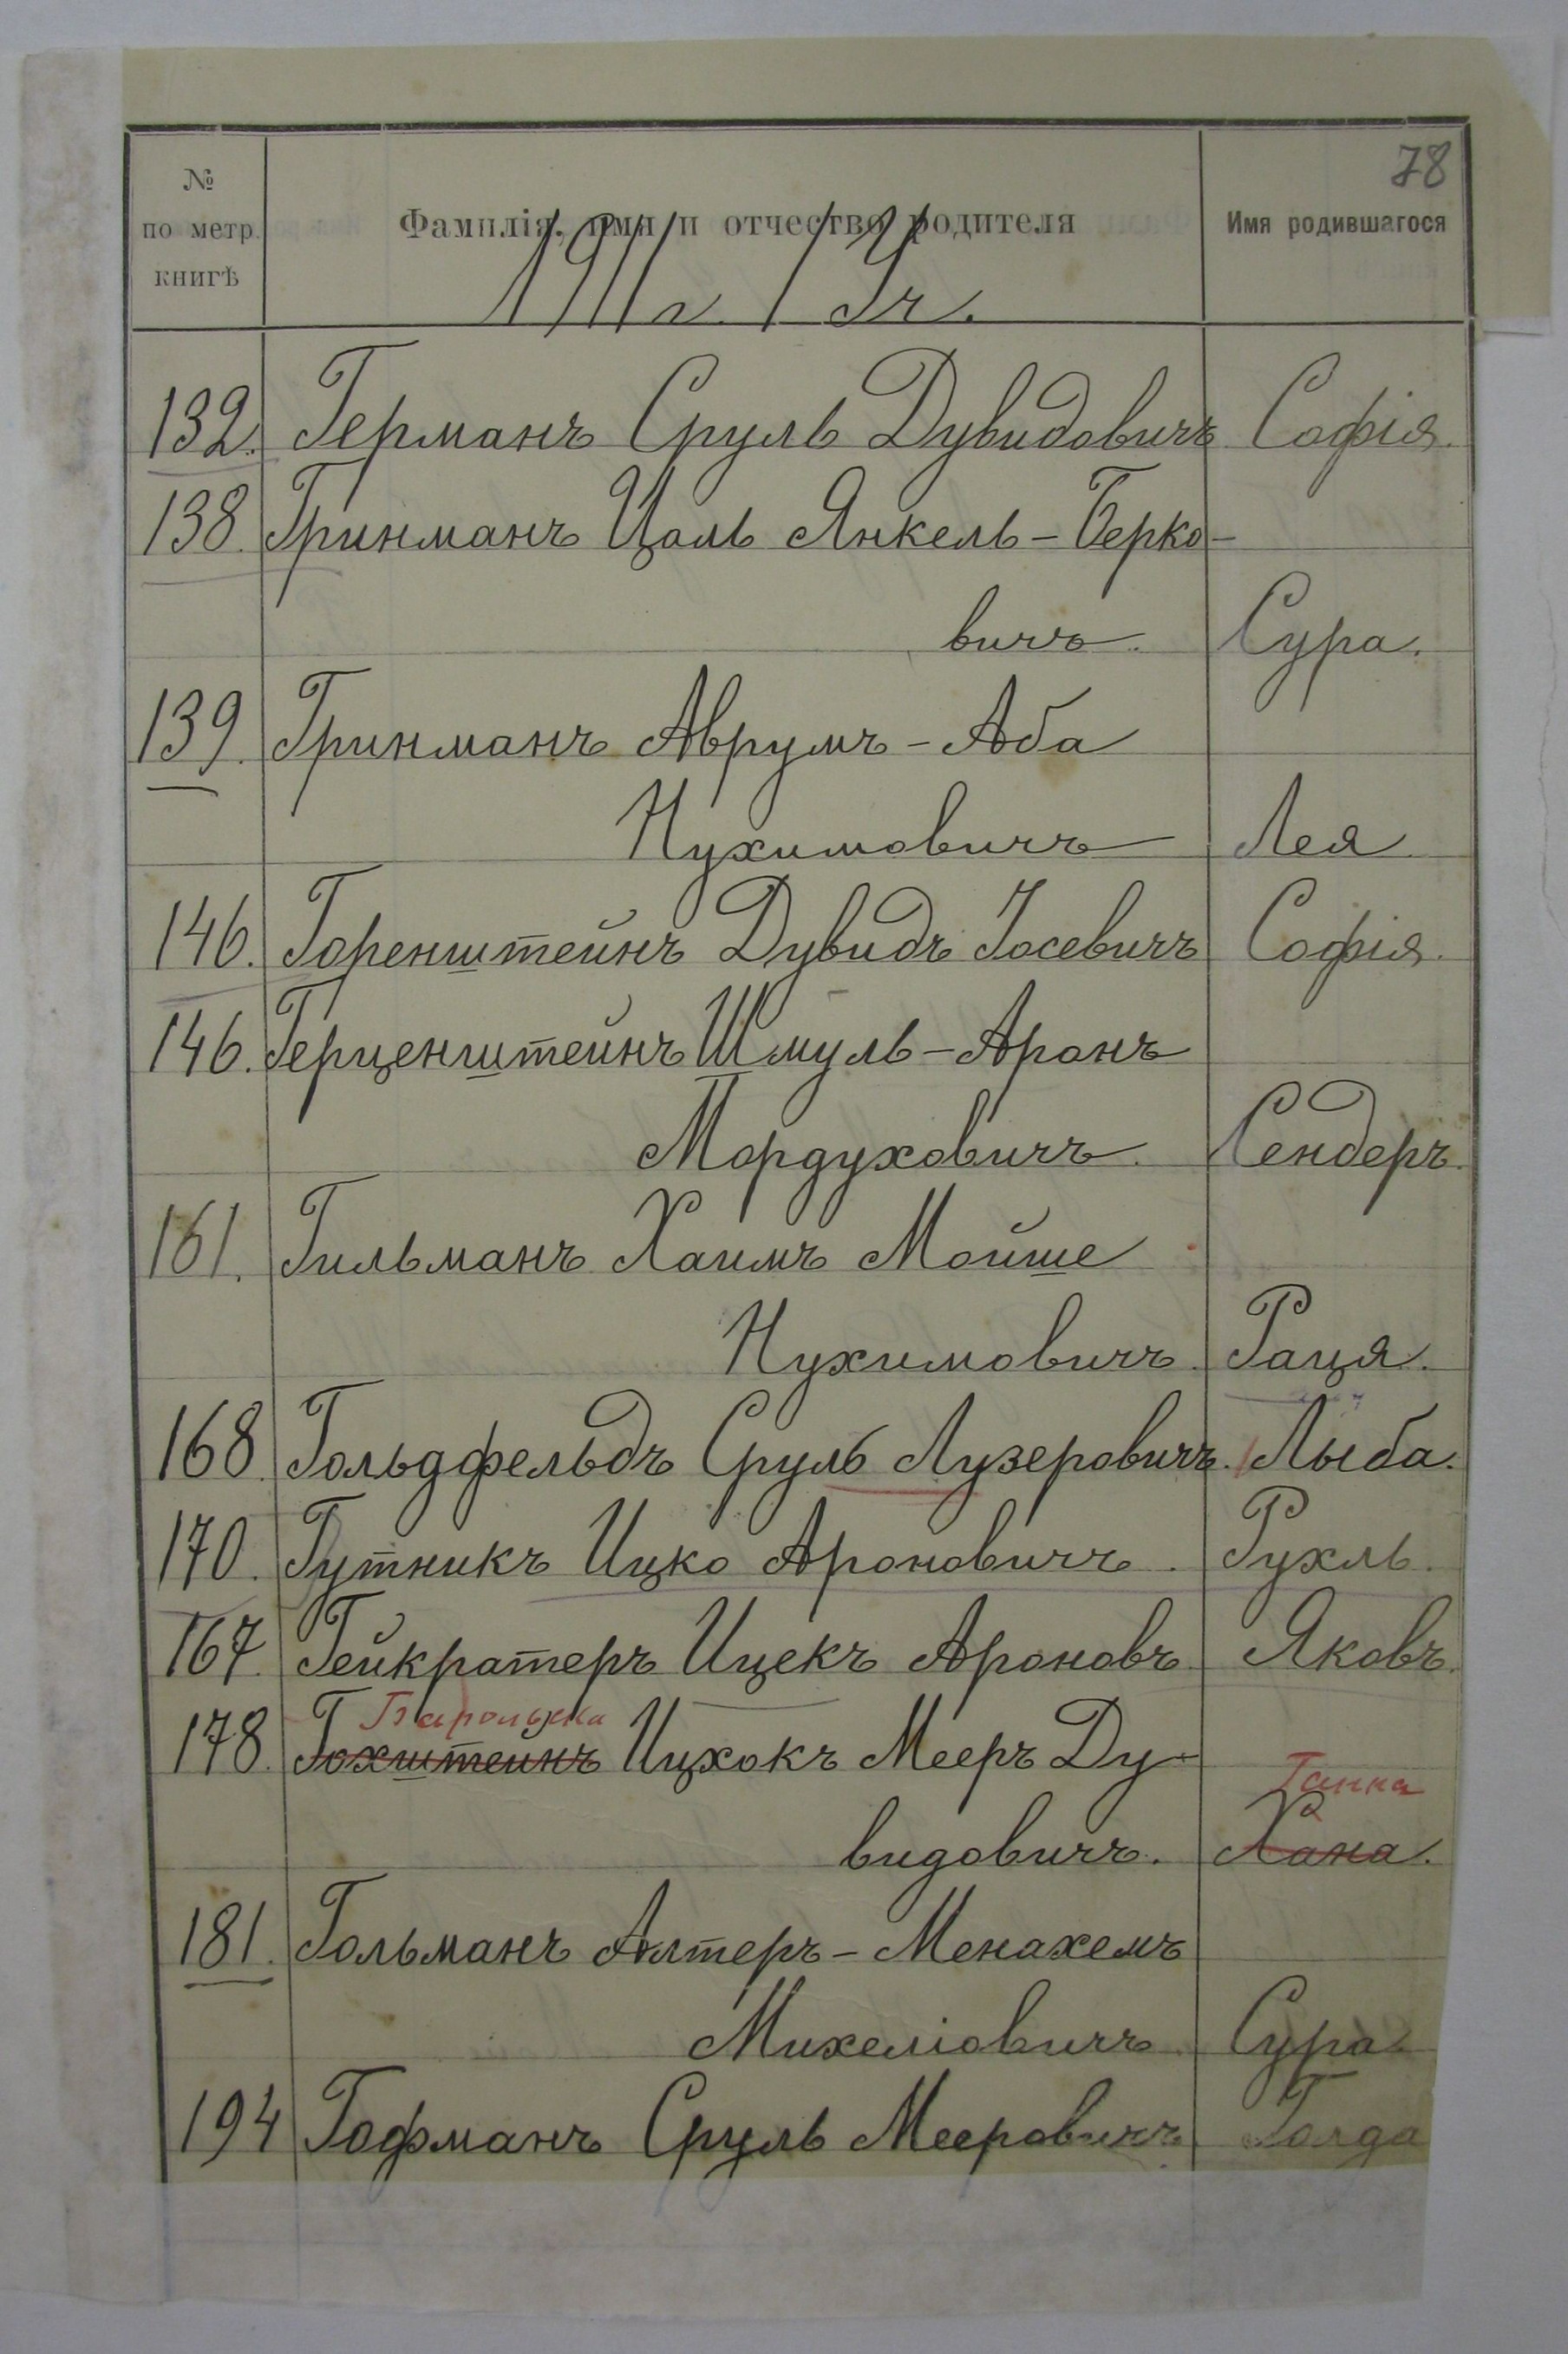 78
№ по метр. книгѣ
Фамилія, имя и отчество родителя
Имя родившагося
1911 г.
132. Германъ Сруль Дувидовичъ Софія.
138. Гринманъ Цаль Янкель-Берко-
вичъ. Сура.
139. Гринманъ Аврумъ-Аба
Нухимовичъ Лея
146. Горенштейнъ Дувидъ Іосевичъ Софія.
146. Герценштейнъ Шмуль-Аронъ
Мордуховичъ. Сендеръ.
161. Гильманъ Хаимъ Мойше
Нухимовичъ. Рация.
168. Гольдфельдъ Сруль Лузеровичъ. Лыба.
170. Гутникъ Ицко Ароновичъ. Рухль.
167. Гейкратеръ Ицекъ Ароновъ. Яковъ.
178. Гохштейнъ Ицхокъ Мееръ Ду-
Ганна
видовичъ. Хана.
181. Гольманъ Алтеръ-Менахемъ
Михеліовичъ. Сура
194 Гофманъ Сруль Мееровичъ. Голда